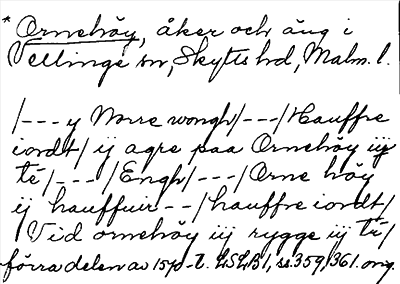 * Ornehöy, åker och äng i
Vellinge sn, Skytts hd, Malm. l.
/--- y Norre wongh/---/Hauffre
iordt/ ij agre paa Ornehöy iij
té/---/Engh/---/Orne höy
ij hauffuir--/hauffre iordt/
Vid ornehöy iij rygge iij té/
förra delen av 1570-t. LSLB1, ss. 359, 361. orig.